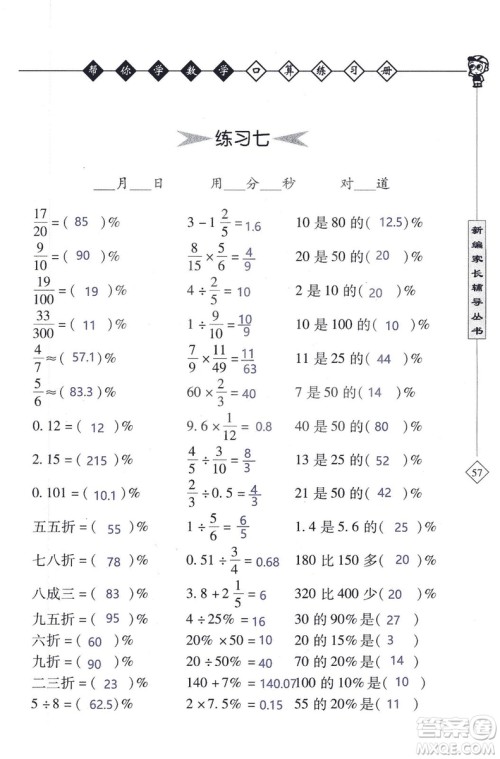 帮你学数学口算练习册
练习七
___月___日 用___分___秒 对___道
17/20=( 85 )% 3-1 2/5=1.6 10是80的( 12.5 )%
9/10=( 90 )% 8/15×5/6=4/9 10是50的( 20 )%
19/100=( 19 )% 4÷2/5=10 2是10的( 20 )%
33/300=( 11 )% 7/9×11/49=11/63 3是30的( 10 )%
4/7≈( 57.1 )% 11是25的( 44 )%
5/6≈( 83.3 )% 60×2/3=40 7是50的( 14 )%
0.12=( 12 )% 9.6×1/12=0.8 40是50的( 80 )%
2.15=( 215 )% 4/5÷3/10=8/3 26是50的( 52 )%
0.101=( 10.1 )% 21是50的( 42 )%
五五折=( 55 )% 1.4是5.6的( 25 )%
七八折=( 78 )% 0.51÷3/4=0.68 180比150多( 20 )%
八成三=( 83 )% 3.8+2 1/5=6 320比400少( 20 )%
九五折=( 95 )% 4÷25%=16 30的90%是( 27 )
六折=( 60 )% 20%×50=10 20的15%是( 3 )
九折=( 90 )% 20÷50%=40 70的30%是( 21 )
二三折=( 23 )% 140+7%=140.07 20的20%是( 4 )
5÷8=( 62.5 )% 2×7.5%=0.15 55的20%是( 11 )
新编家长辅导丛书
57